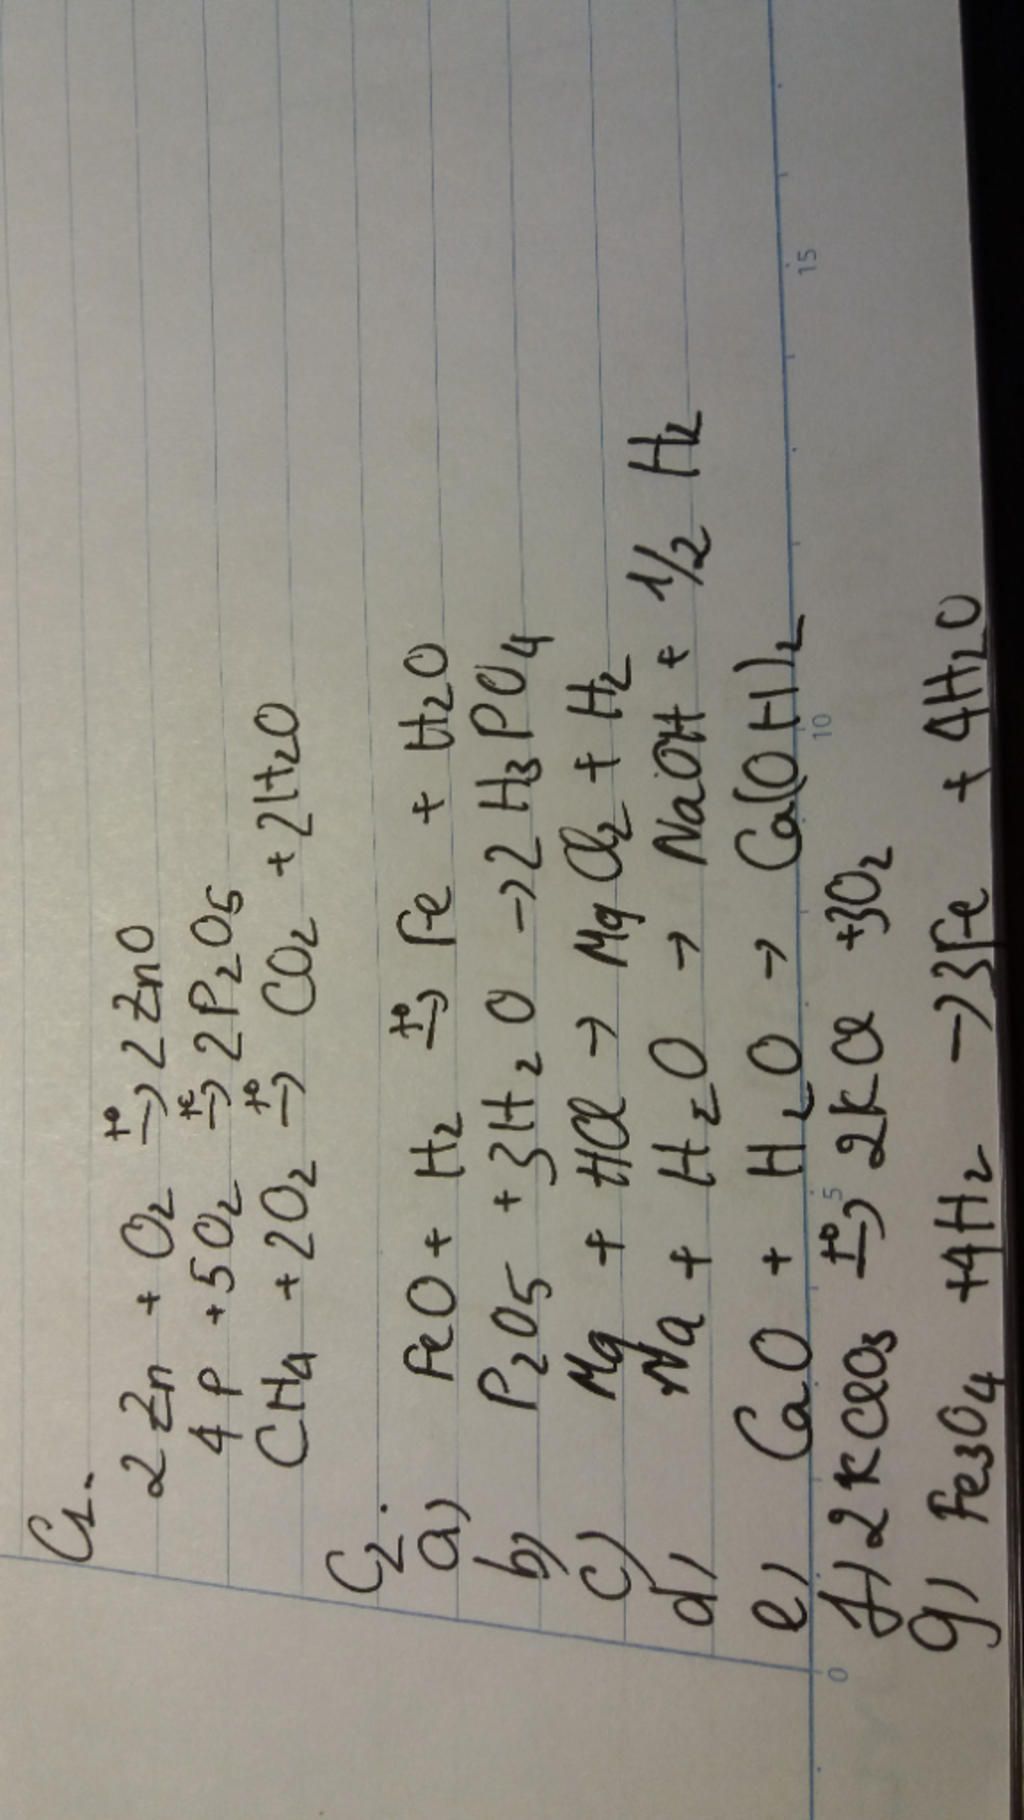 C1.
2Zn + O2 t°→ 2ZnO
4P + 5O2 t°→ 2P2O5
CH4 + 2O2 t°→ CO2 + 2H2O
C2.
a) FeO + H2 t°→ Fe + H2O
b) P2O5 + 3H2O → 2H3PO4
c) Mg + HCl → MgCl2 + H2
d) Na + H2O → NaOH + 1/2 H2
e) CaO + H2O → Ca(OH)2
0 5 10 15
f) 2KClO3 t°→ 2KCl + 3O2
g) Fe3O4 + 4H2 → 3Fe + 4H2O